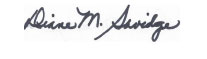 Diane M. Savidge